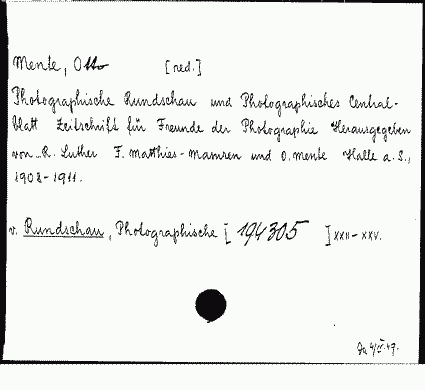 Mente, Otto [red.]
Photographische Rundschau und Photographisches Central-
blatt Zeitschrift für Freunde der Photographie Herausgegeben
von R. Luther F. Matthies-Masuren und O. Mente Halle a.S.,
1908-1911.
v. Rundschau, Photographische [194305] XXII-XXV.